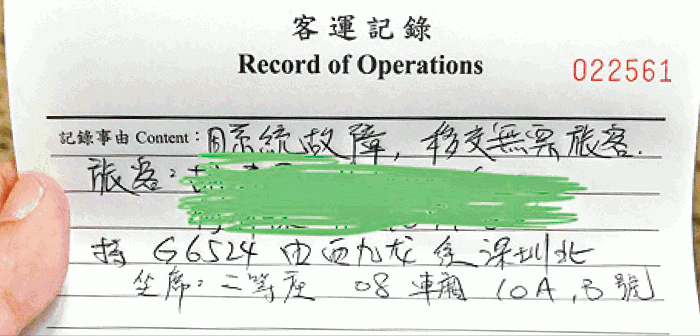 客運記錄
Record of Operations 022561
記錄事由 Content：因系統故障，移交無票旅客．
旅客：
持 G6524 由西九龙至深圳北
坐席：二等座 08 車廂 10A，B 號